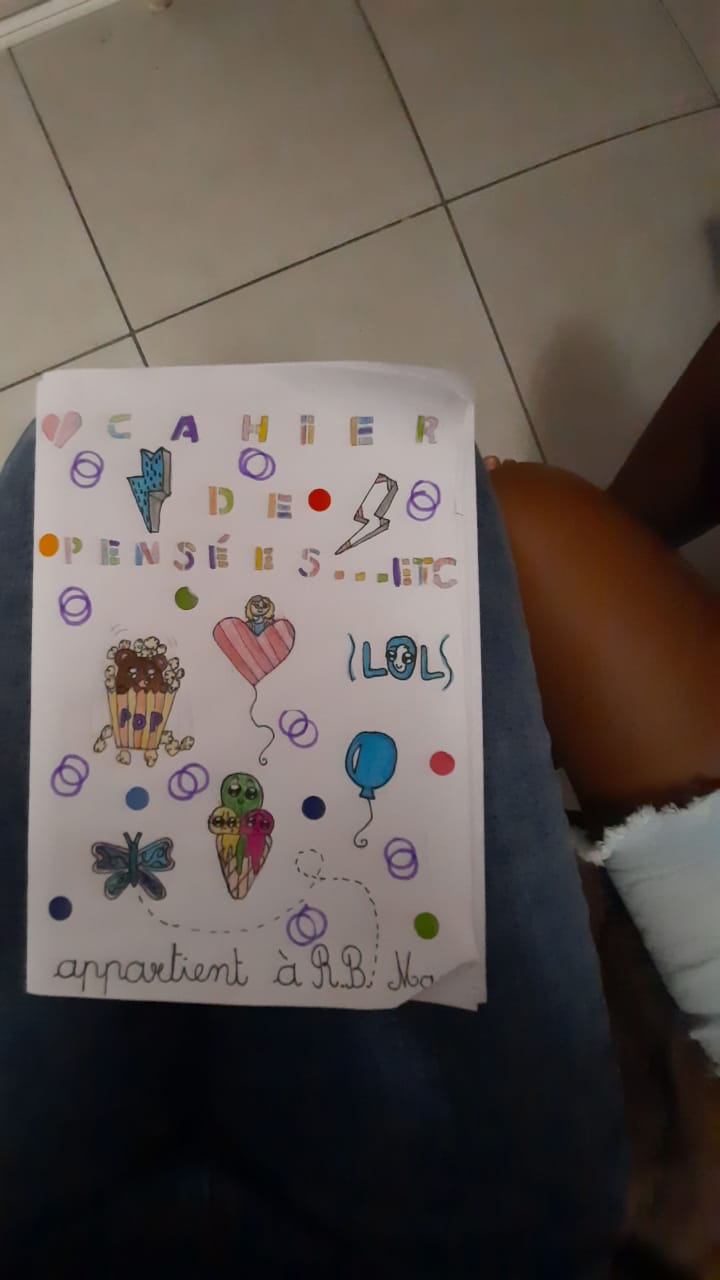 CAHiER
DE
PENSÉES...ETC
LOL
POP
appartient à R.B.